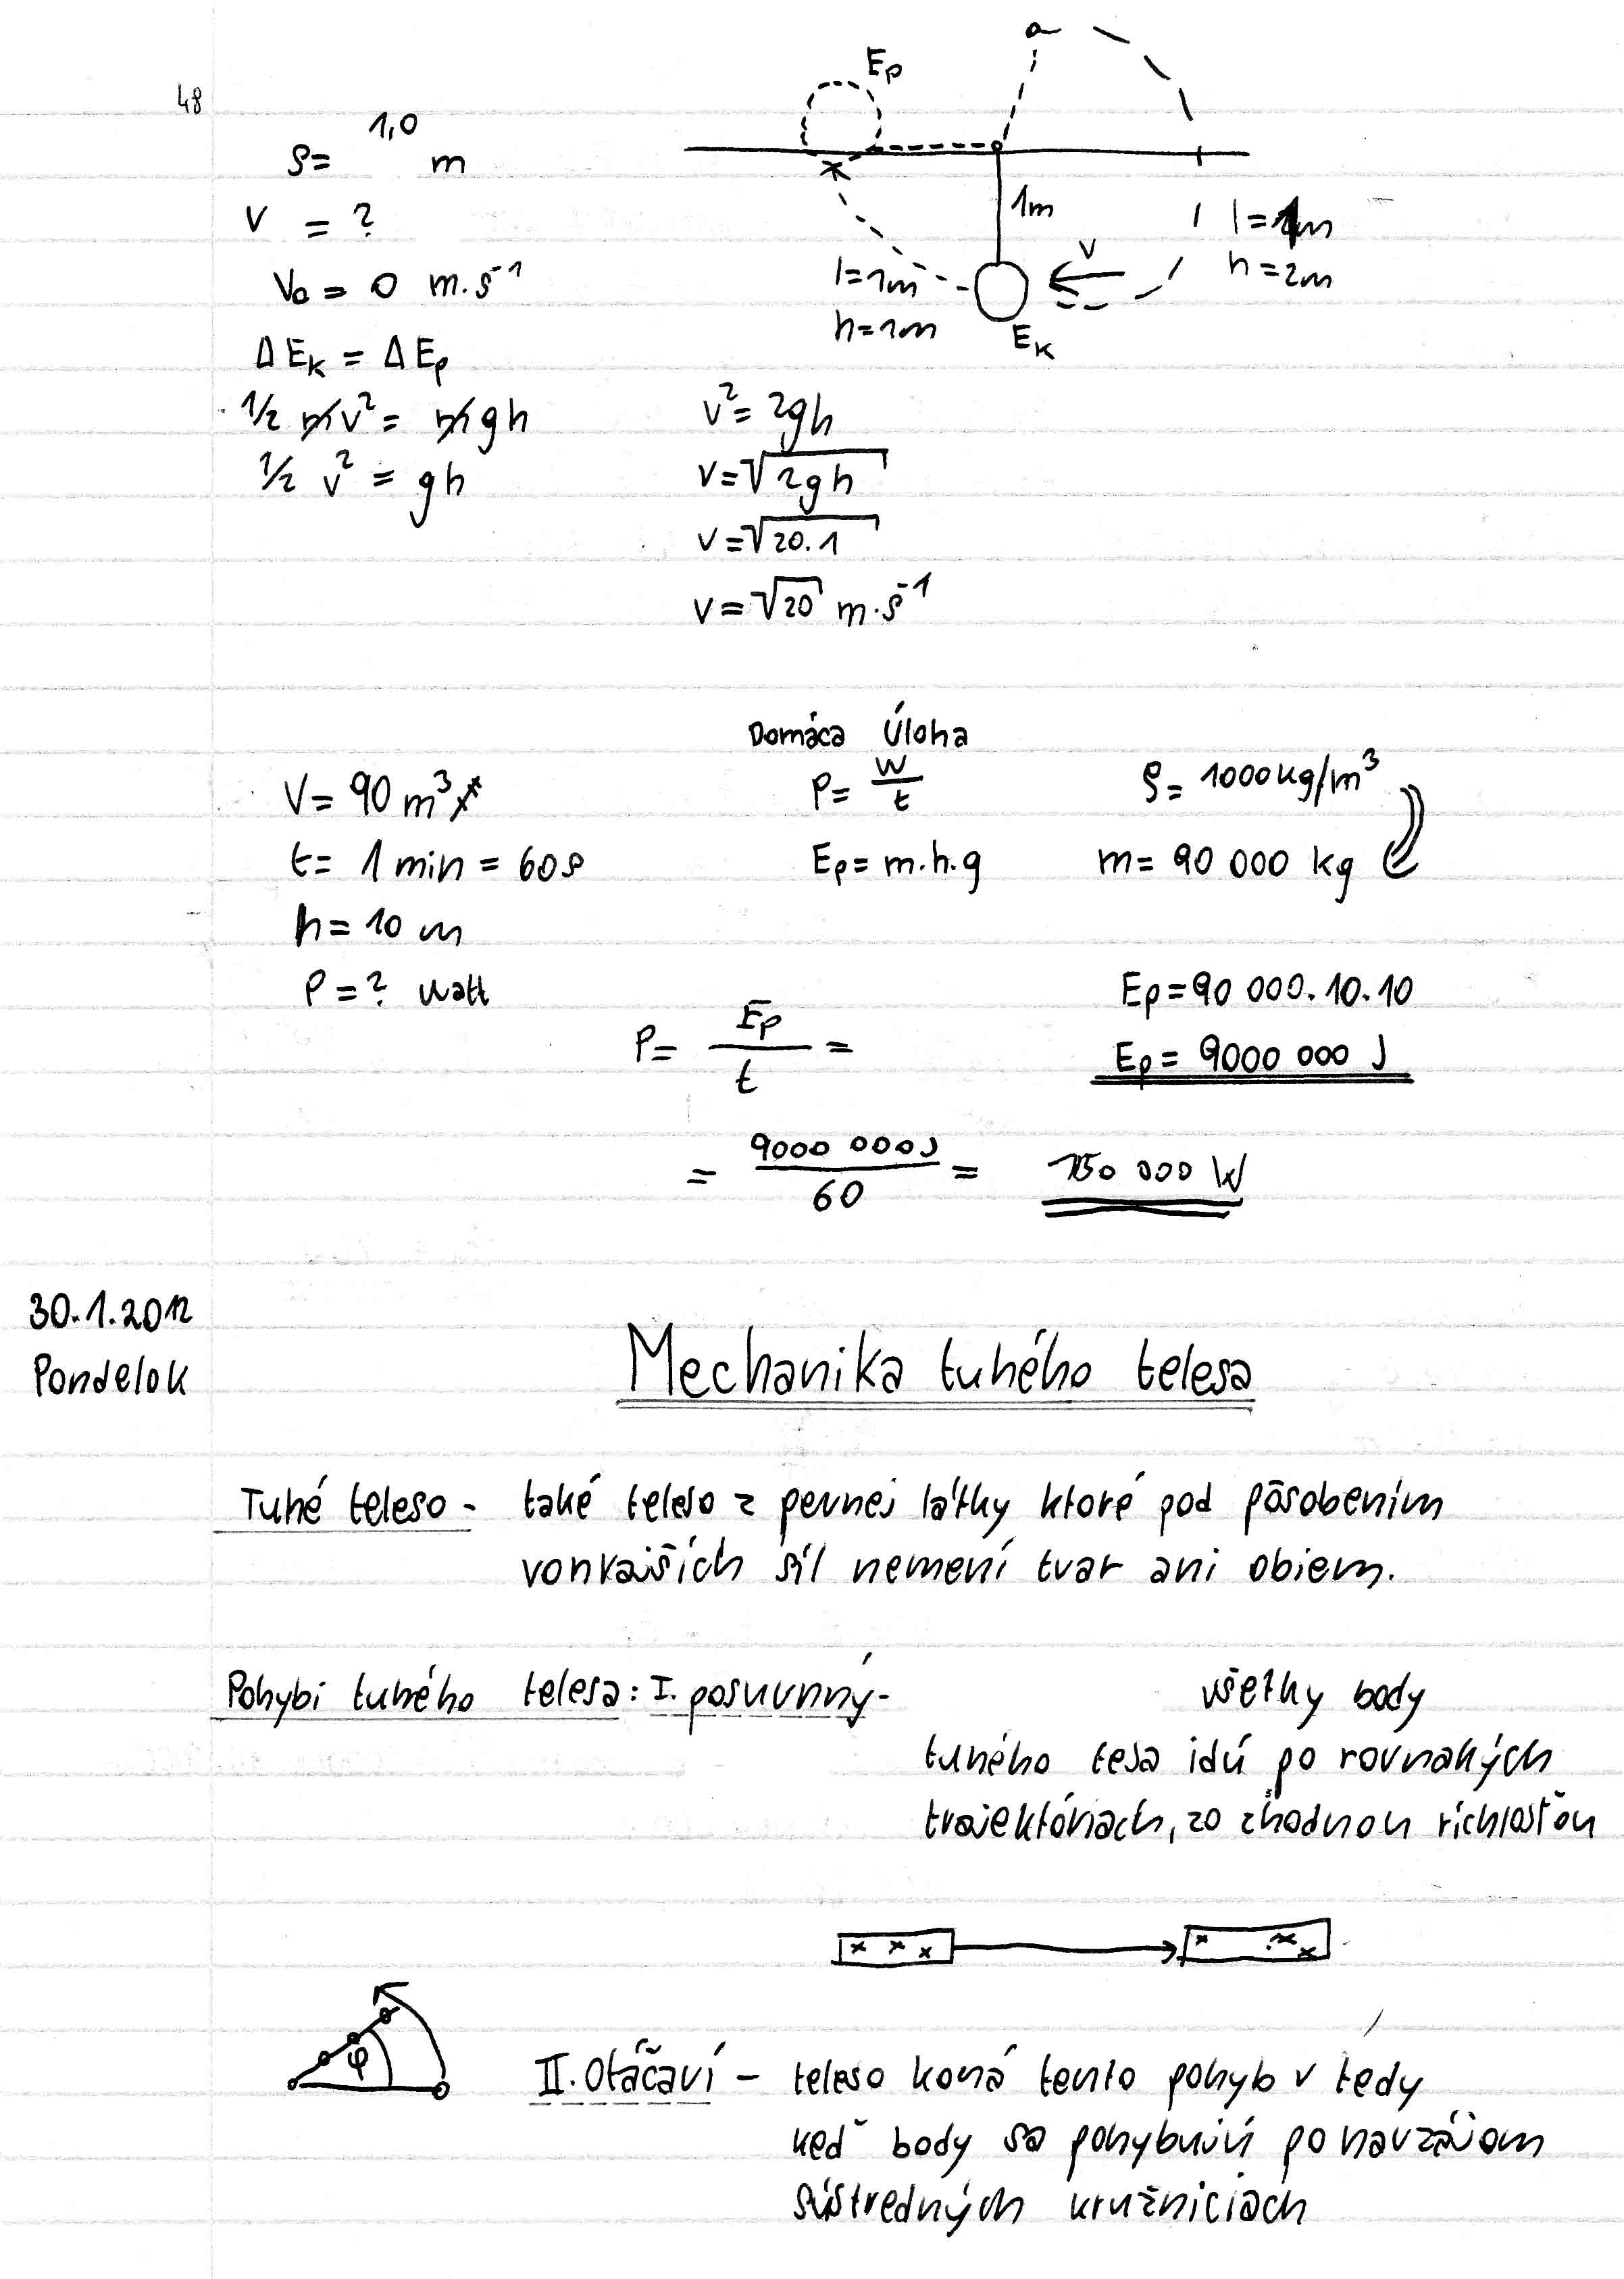 48
1,0
s= m
v = ?
v₀ = 0 m.s⁻¹
ΔEₖ = ΔEₚ
1/2 mv² = mgh
1/2 v² = gh
Eₚ
1m
v
l=1m
h=2m
l=1m
h=1m
Eₖ
v²= 2gh
v=√2gh
v=√20.1
v=√20 m.s⁻¹
Domáca Úloha
V= 90 m³
t= 1 min = 60s
h= 10 m
P=? watt
P= W/t
Eₚ= m.h.g
ρ= 1000kg/m³
m= 90 000 kg
Eₚ=90 000.10.10
Eₚ= 9000 000 J
P= Eₚ/t =
= 9000 000J/60 = 150 000 W
30.1.2012
Pondelok
Mechanika tuhého telesa
Tuhé teleso - také teleso z pevnej látky ktoré pod pôsobením
vonkajších síl nemení tvar ani objem.
Pohybi tuhého telesa: I. posuvnný- všetky body
tuhého tesa idú po rovnakých
trajektóriach, zo zhodnou richlosťou
φ
II. Otáčaví - teleso koná tento pohyb v tedy
keď body sa pohybujú po navzájom
sústredných kružniciach